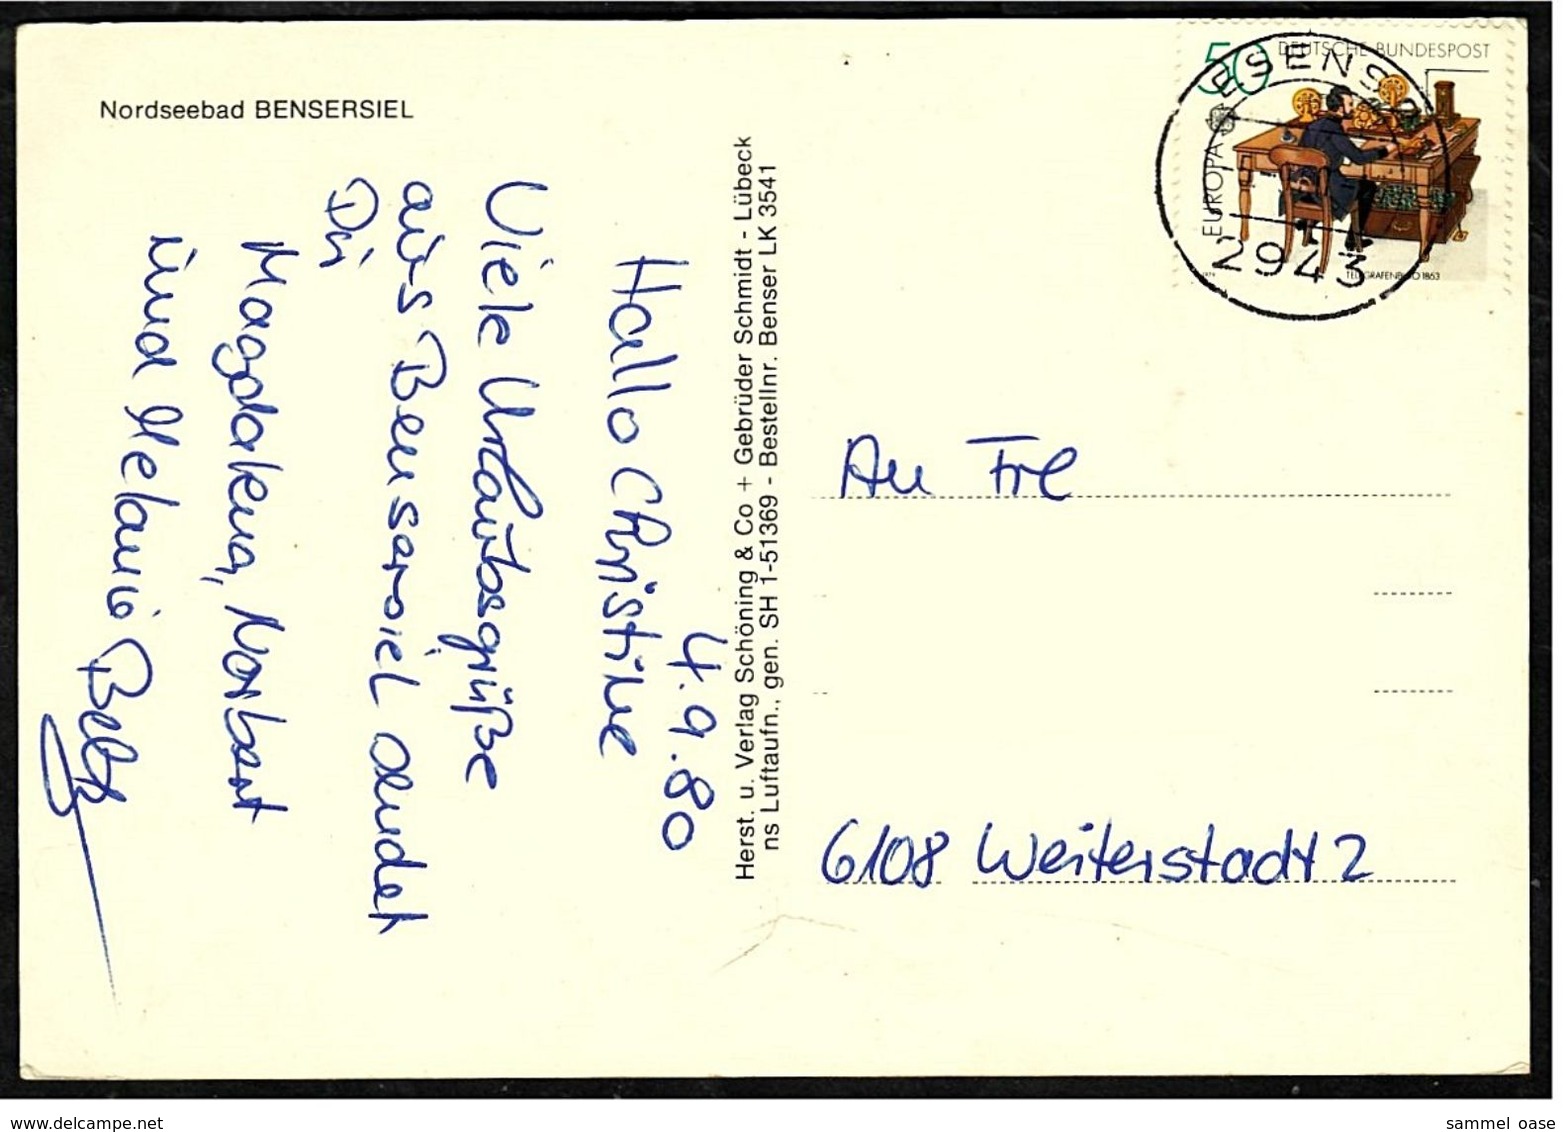 Nordseebad BENSERSIEL
4.9.80
Hallo Christine
Viele Urlaubsgrüße
aus Bensersiel sendet
Dir
Magdalena, Norbert
und Melanie
Herst. u. Verlag Schöning & Co + Gebrüder Schmidt - Lübeck
ns Luftaufn., gen. SH 1-51369 - Bestellnr. Benser LK 3541
50 DEUTSCHE BUNDESPOST
EUROPA
TELEGRAFENBÜRO 1863
ESENS
2943
An Frl
6108 Weiterstadt 2
www.delcampe.net
sammel_oase